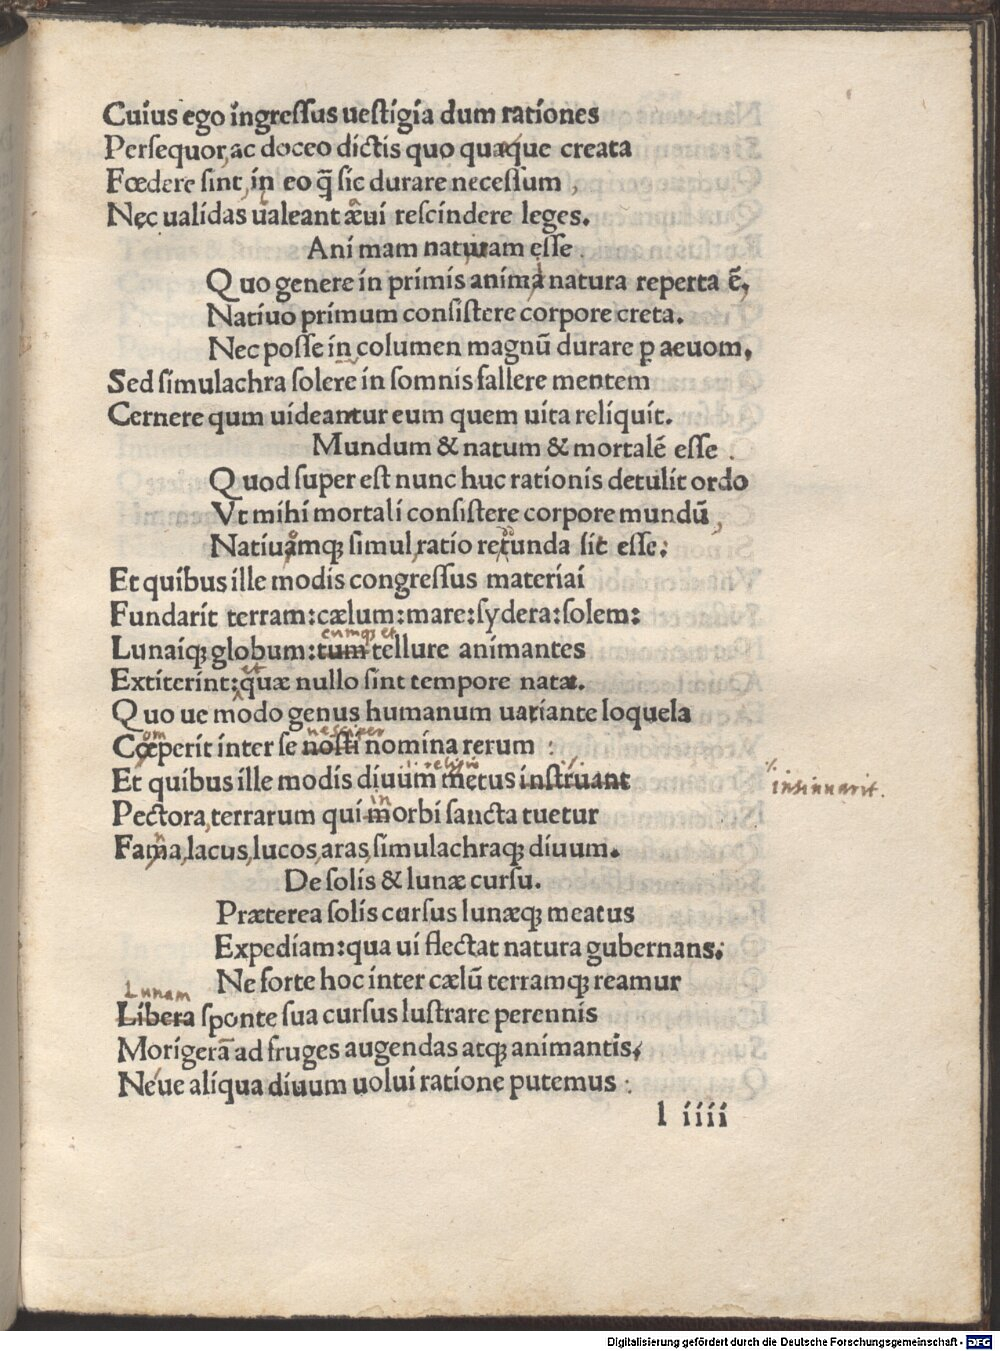 Cuius ego ingressus uestigia dum rationes
Persequor, ac doceo dictis quo quæque creata
Fœdere sint, in eo q̄ sic durare necessum,
Nec ualidas ualeant æui rescindere leges.
Ani mam naturam esse.
Quo genere in primis anima natura reperta ē,
Natiuo primum consistere corpore creta.
Nec posse in columen magnū durare p aeuom,
Sed simulachra solere in somnis fallere mentem
Cernere qum uideantur eum quem uita reliquit.
Mundum & natum & mortalē esse.
Quod super est nunc huc rationis detulit ordo
Vt mihi mortali consistere corpore mundū,
Natiuamq; simul, ratio retunda sit esse:
Et quibus ille modis congressus materiai
Fundarit terram: cælum: mare: sydera: solem:
eumq; et
Lunaiq; globum: tum tellure animantes
et
Extiterint: quæ nullo sint tempore natæ.
Quo ue modo genus humanum uariante loquela
om nesciper
Cœperit inter se nosti nomina rerum:
religio
Et quibus ille modis diuum metus instruant
insinuarit.
in
Pectora, terrarum qui morbi sancta tuetur
n
Fama, lacus, lucos, aras, simulachraq; diuum.
De solis & lunæ cursu.
Præterea solis cursus lunæq; meatus
Expediam: qua ui flectat natura gubernans:
Ne forte hoc inter cælū terramq; reamur
Lunam
Libera sponte sua cursus lustrare perennis
Morigera ad fruges augendas atq; animantis:
Neue aliqua diuum uolui ratione putemus:
l iiii
Digitalisierung gefördert durch die Deutsche Forschungsgemeinschaft - DFG